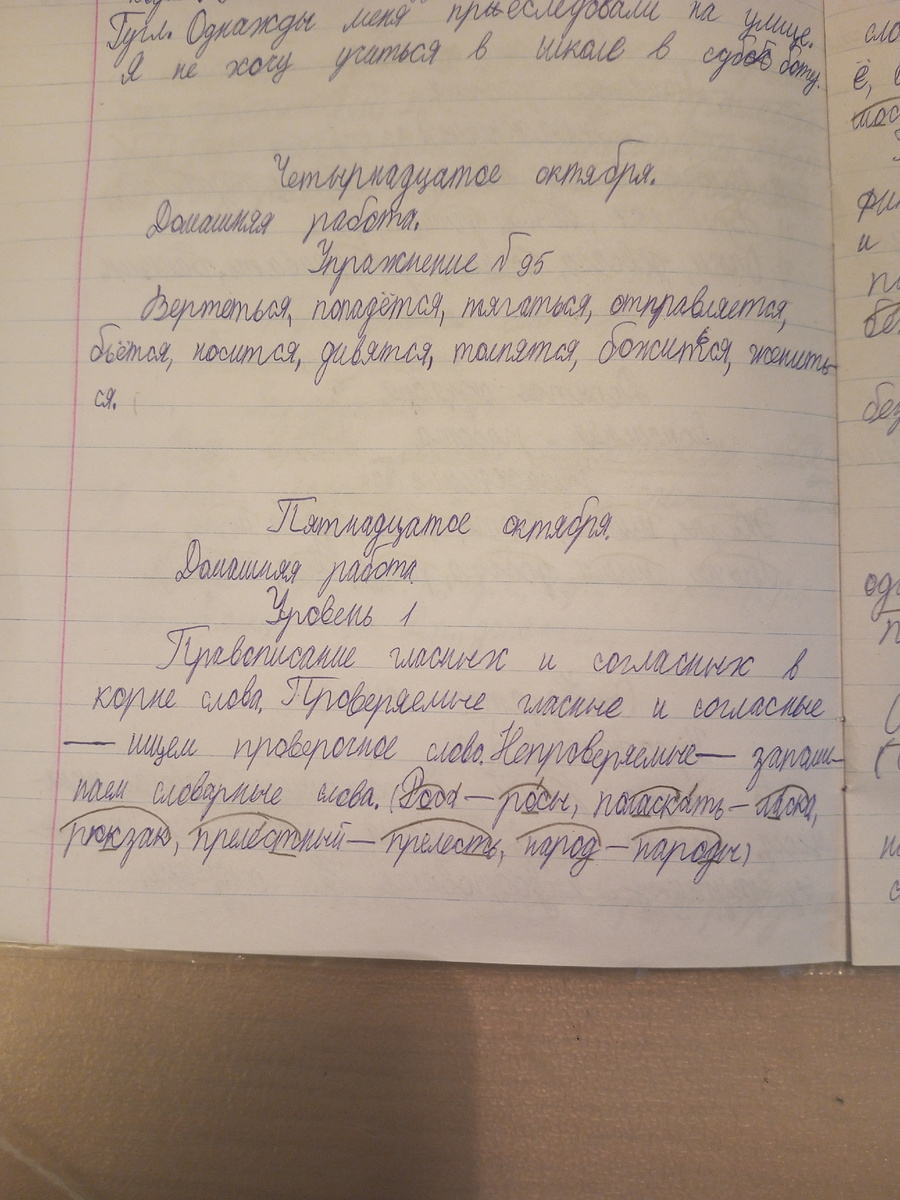 Гугл. Однажды меня преследовали на улице.
Я не хочу учиться в школе в субботу.
Четырнадцатое октября.
Домашняя работа.
Упражнение № 95
Вертеться, попадётся, тягаться, отправляется,
бьётся, носится, дивятся, толпятся, божиться, женить-
ся.
Пятнадцатое октября.
Домашняя работа
Уровень 1
Правописание гласных и согласных в
корне слова. Проверяемые гласные и согласные
— ищем проверочное слово. Непроверяемые — запоми-
наем словарные слова. (Роса — росы, поласкать — ласка,
рюкзак, прелестный — прелесть, народ — народы)
сло
ё,
фи
и
бе
без